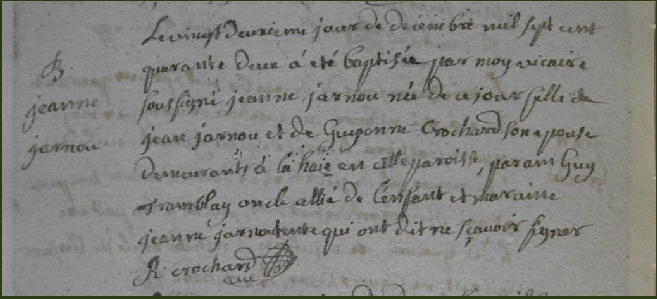 Le vingt deuxieme jour de decembre mil sept cent
B
quarante deux á été baptisée par moy vicaire
jeanne
soussigné jeanne jarnou née de ce jour fille de
jarnou
jean jarnou et de Guyonne Crochard son epouse
demeurants á la haie en cette paroisse, parain Guy
Tramblay oncle allié de l'enfant et maraine
jeanne jarnou tente qui ont dit ne sçavoir signer
R crochard